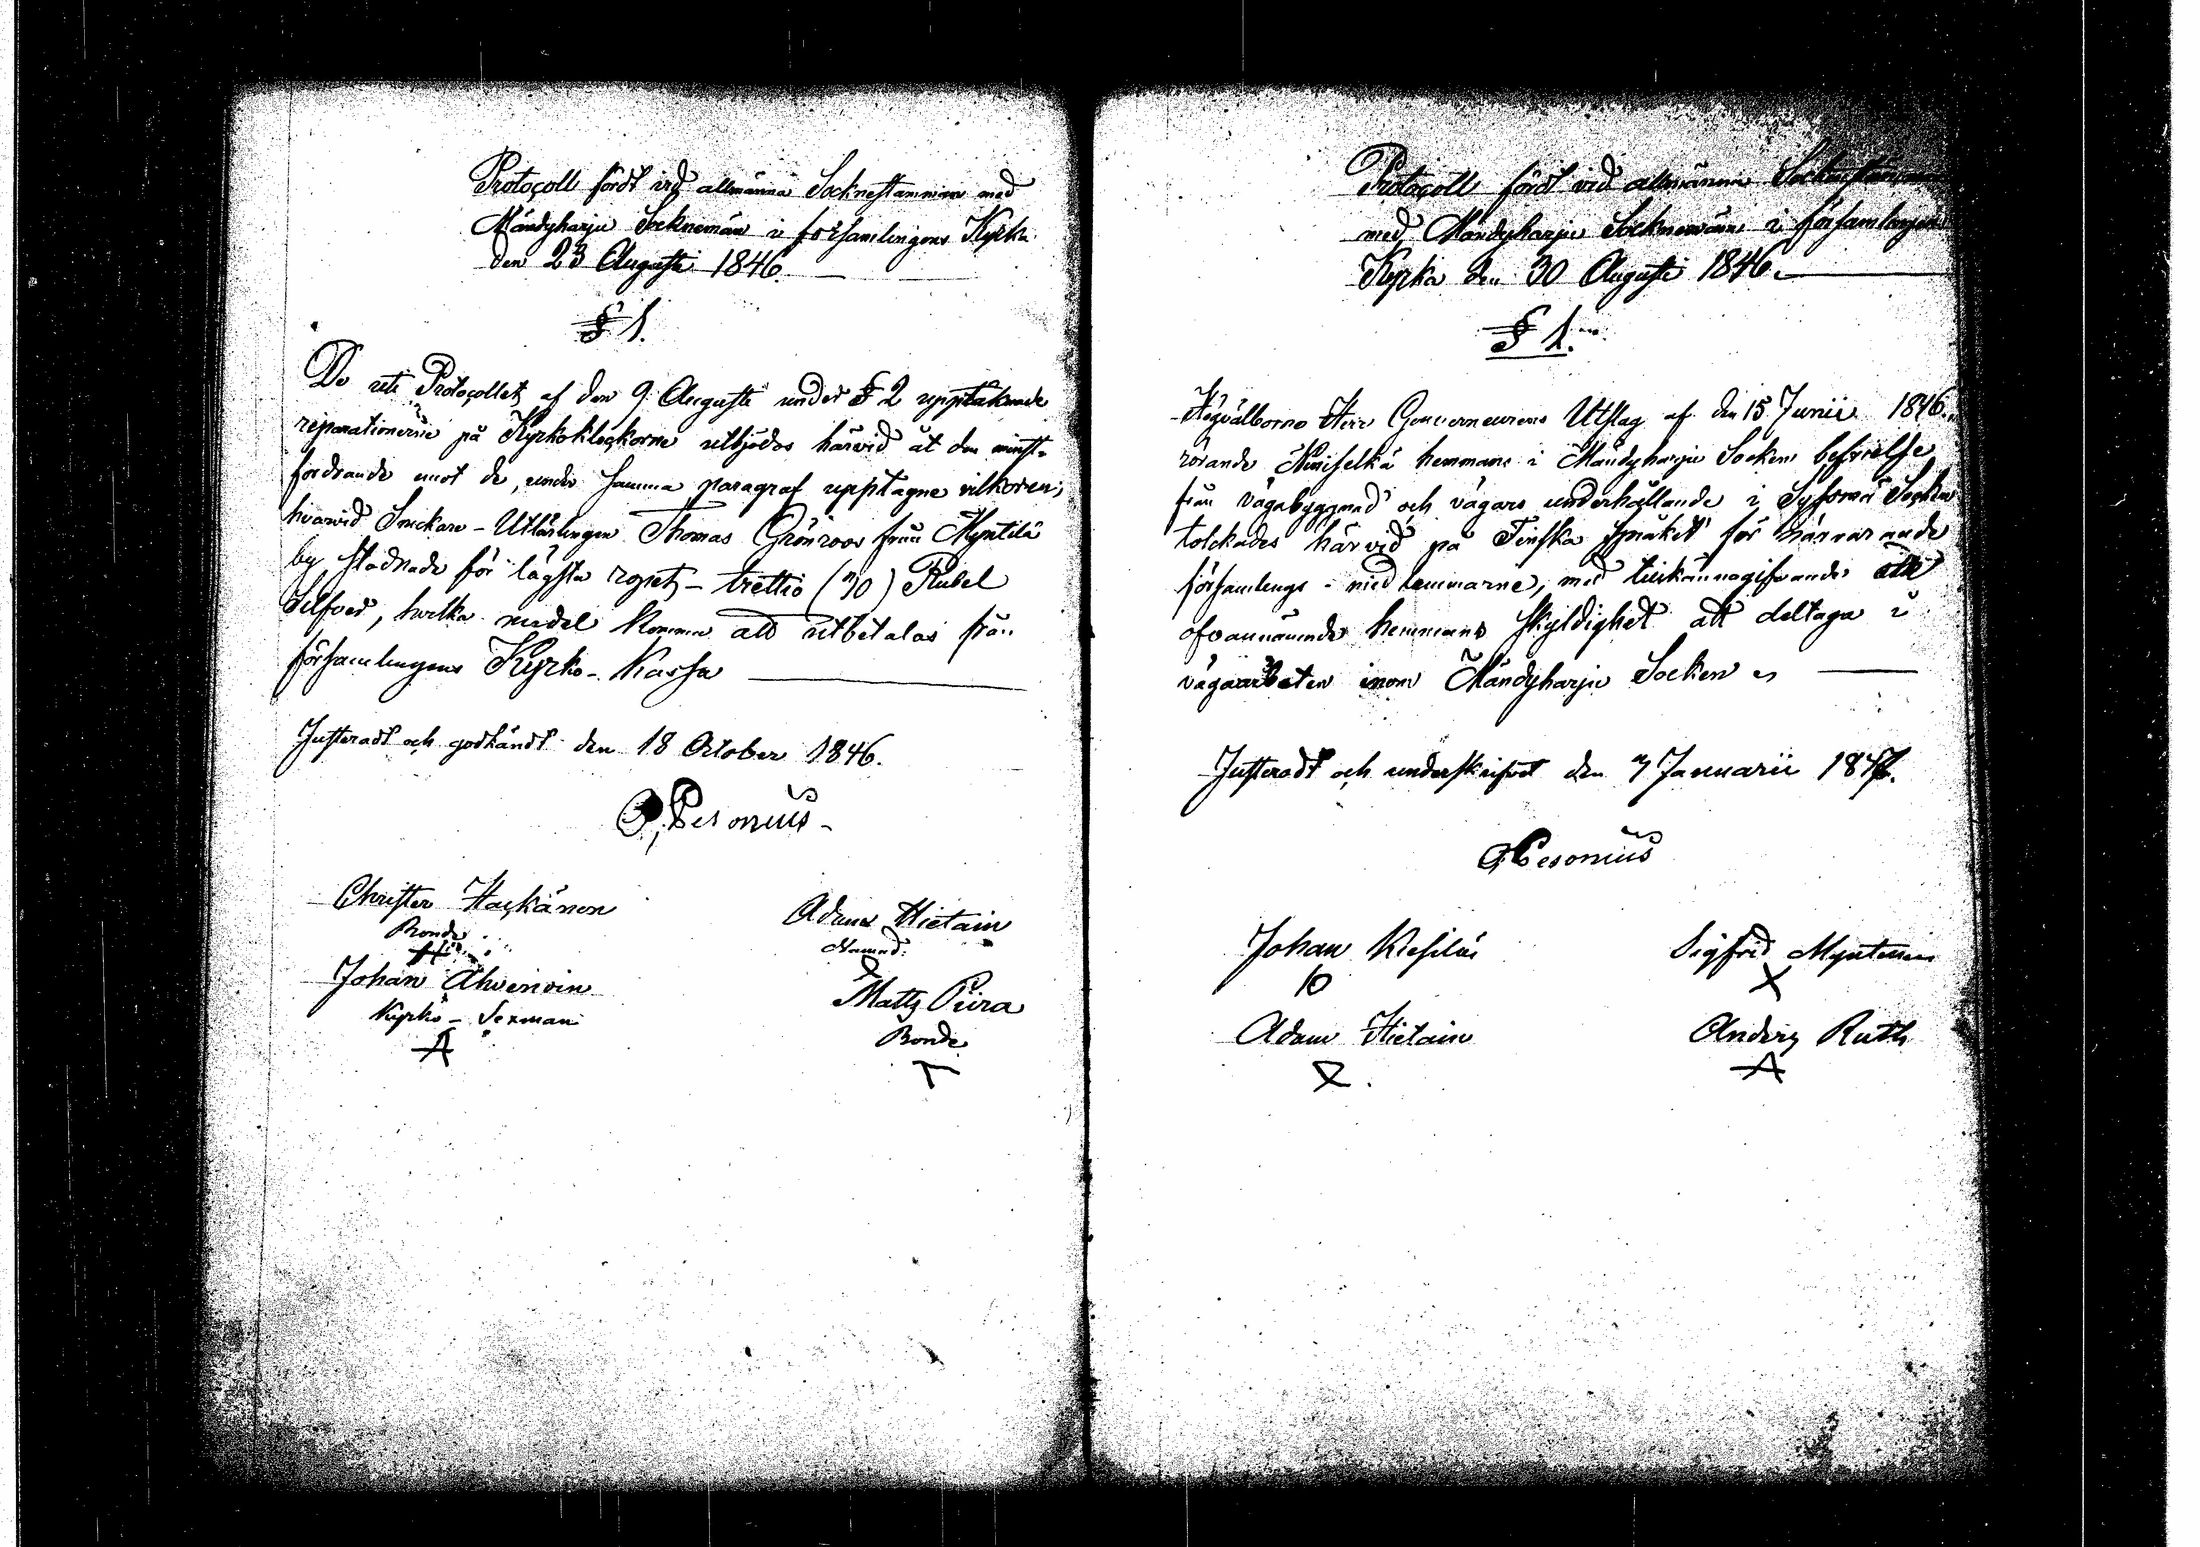 Protocoll fördt vid allmänna Socknestämman med
Mändyharju Socknemän i församlingens Kyrka
den 23 Augusti 1846.
§ 1.
De uti Protocollet af den 9 Augusti under § 2 upptaknade
reparationerne på Kyrkoklockorne utbjödos härvid åt den minst-
fordrande emot de, under samma paragraf upptagne vilkoren;
hvarvid Smeckare - Utlärlingen Thomas Grönroos från Myntilä
by stadnade för lägsta ropet - trettio (30) Rubel
Silfver, hvilka medel komma att utbetalas från
församlingens Kyrko- Kassa
Justeradt och godkändt den 18 October 1846.
O, Pesonius
Christer Hackänen
Adam Hietain
Bonde
Nämnd:
Johan Ahvenoin
Matts Piira
Kyrko - Sexman
Bonde
Protocoll fördt vid allmänna Sockneftämman
med Mändyharju Socknemän i församlingens
Kyrka den 30 Augusti 1846.
§ 1.
Högvälborne Herr Gouverneurens Utslag af den 15 Junii 1846
rörande hemmans i Mändyharju Socken befrielse
från vägabyggnad och vägars underhållande i Sysmä Socken
tolckades härvid på Finska språket för närvarande
församlings - medlemmarne, med tillkännagifvande
ofvannämnde hemmans skyldighet att deltaga i
vägaarbeten inom Mändyharju Socken
Justeradt och underskrifvet den 7 Januarii 1847.
O, Pesonius
Johan Kesilä
Sigfrid Myntinen
Adam Hietain
Anders Ruth